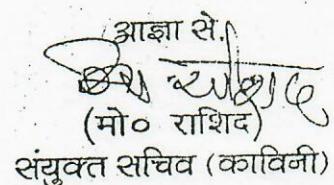 आज्ञा से,
(मो० राशिद)
संयुक्त सचिव (काविनी)